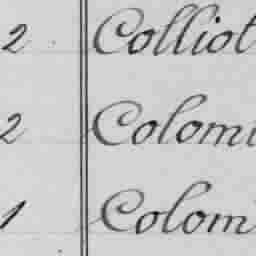 2 Colliot
2 Colomi
1 Colom